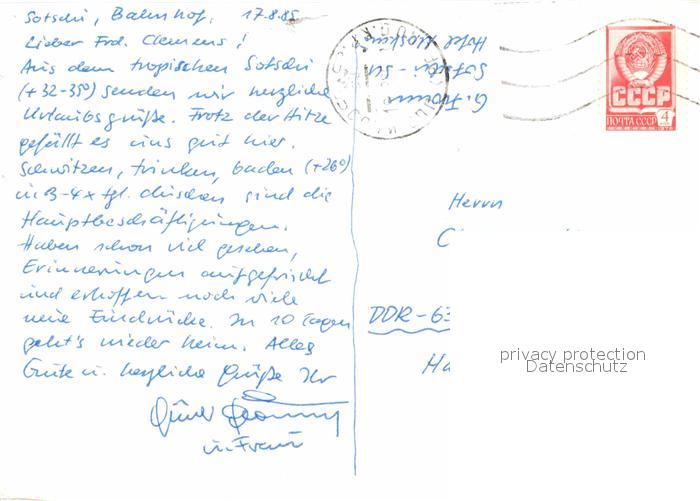 Sotschi, Bahnhof, 17.8.85
Lieber Frd. Clemens!
Aus dem tropischen Sotschi
(+32-35°) senden wir herzliche
Urlaubsgrüße. Trotz der Hitze
gefällt es uns gut hier.
Schwitzen, trinken, baden (+26°)
u. 3-4x tgl. duschen sind die
Hauptbeschäftigungen.
Haben schon viel gesehen,
Erinnerungen aufgefrischt
und erhoffen noch viele
neue Eindrücke. In 10 Tagen
geht's wieder heim. Alles
Gute u. herzliche Grüße Ihr
u. Frau
Sotschi - SU
Hotel Moskau
СССР
ПОЧТА СССР 4
Herrn
C
DDR-63
Ha
privacy protection
Datenschutz